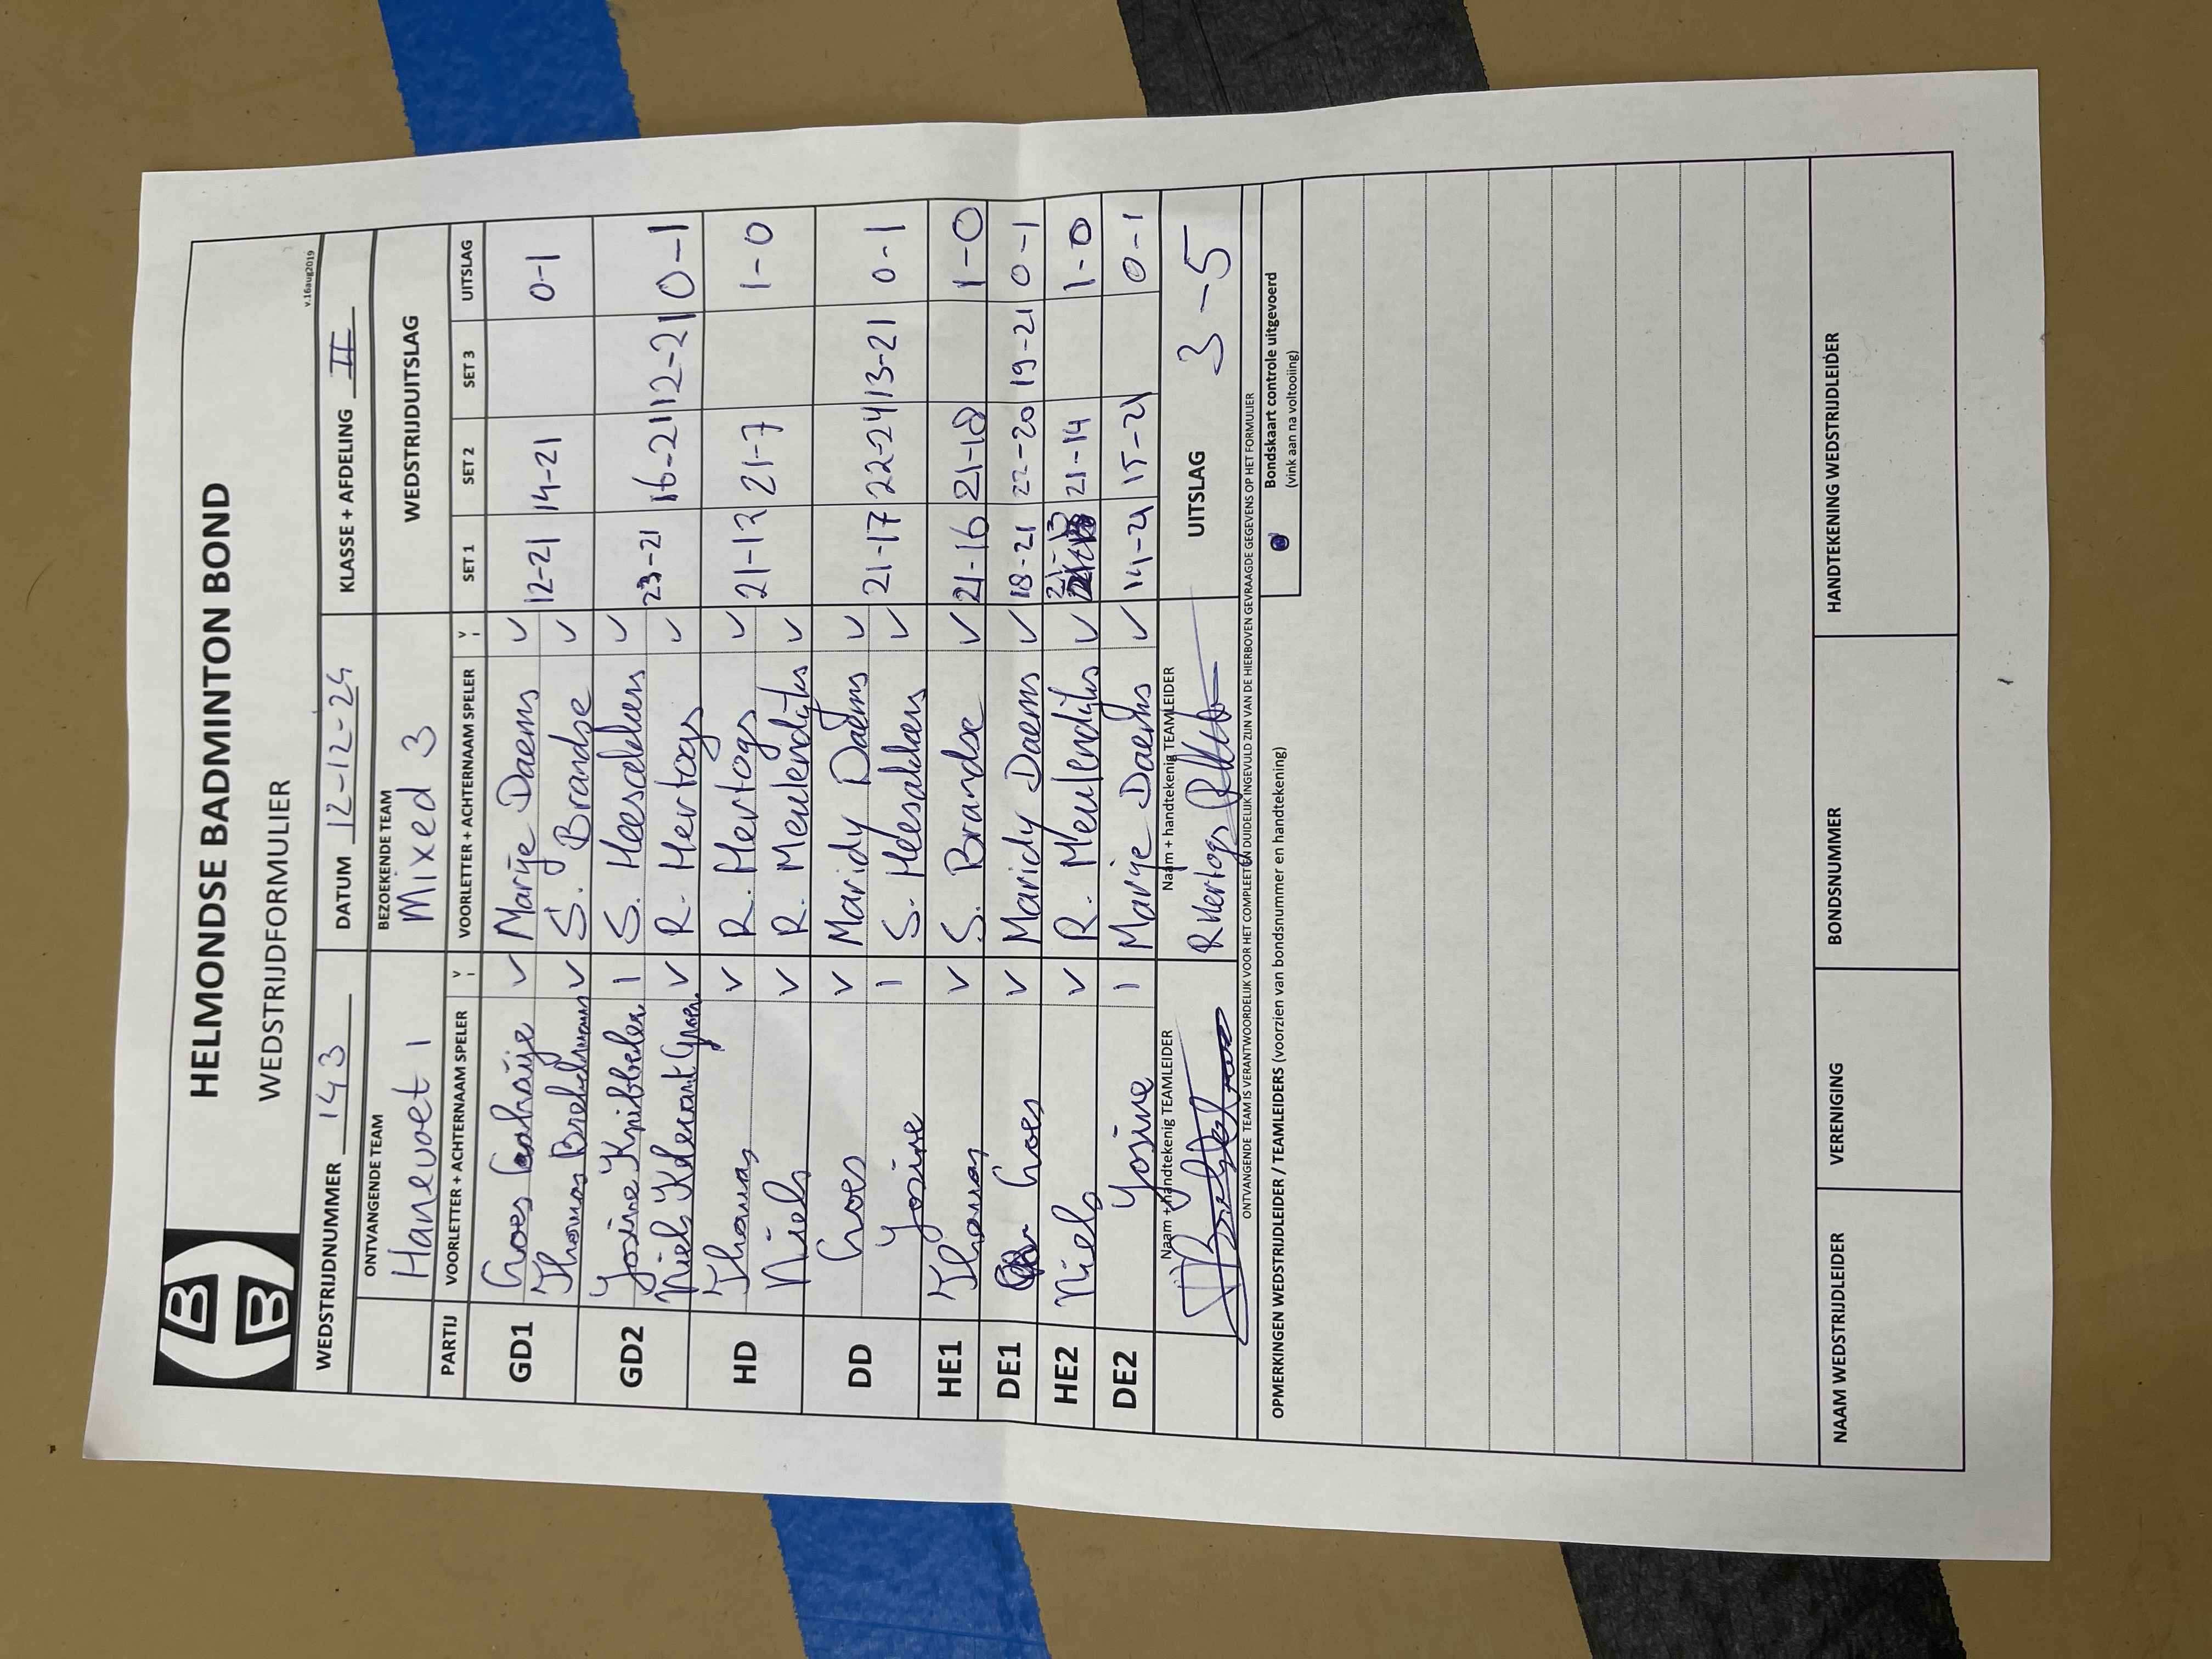 BB
HELMONDSE BADMINTON BOND
WEDSTRIJDFORMULIER
v.16aug2019
WEDSTRIJDNUMMER 143 DATUM 12-12-24 KLASSE + AFDELING II
ONTVANGENDE TEAM BEZOEKENDE TEAM WEDSTRIJDUITSLAG
Hanevoet 1 Mixed 3
PARTIJ VOORLETTER + ACHTERNAAM SPELER V VOORLETTER + ACHTERNAAM SPELER V SET 1 SET 2 SET 3 UITSLAG
GD1 Loes V Marije Daems V 12-21 14-21 0-1
Thomas V S. Brandse V
GD2 Josine Knibbeler I S. Heesakkers V 23-21 16-21 12-21 0-1
Niels V R. Hertogs V
HD Thomas V R. Hertogs V 21-12 21-7 1-0
Niels V R. Meulendijks V
DD Loes V Maridy Daems V 21-17 22-24 13-21 0-1
Josine I S. Heesakkers V
HE1 Thomas V S. Brandse V 21-16 21-18 1-0
DE1 Loes V Maridy Daems V 18-21 22-20 19-21 0-1
HE2 Niels V R. Meulendijks V 21-13 21-14 1-0
DE2 Josine I Marije Daems V 14-21 15-21 0-1
Naam + handtekenig TEAMLEIDER Naam + handtekenig TEAMLEIDER
R Hertogs UITSLAG 3-5
ONTVANGENDE TEAM IS VERANTWOORDELIJK VOOR HET COMPLEET EN DUIDELIJK INGEVULD ZIJN VAN DE HIERBOVEN GEVRAAGDE GEGEVENS OP HET FORMULIER
OPMERKINGEN WEDSTRIJDLEIDER / TEAMLEIDERS (voorzien van bondsnummer en handtekening) Bondskaart controle uitgevoerd
(vink aan na voltooiing)
NAAM WEDSTRIJDLEIDER VERENIGING BONDSNUMMER HANDTEKENING WEDSTRIJDLEIDER